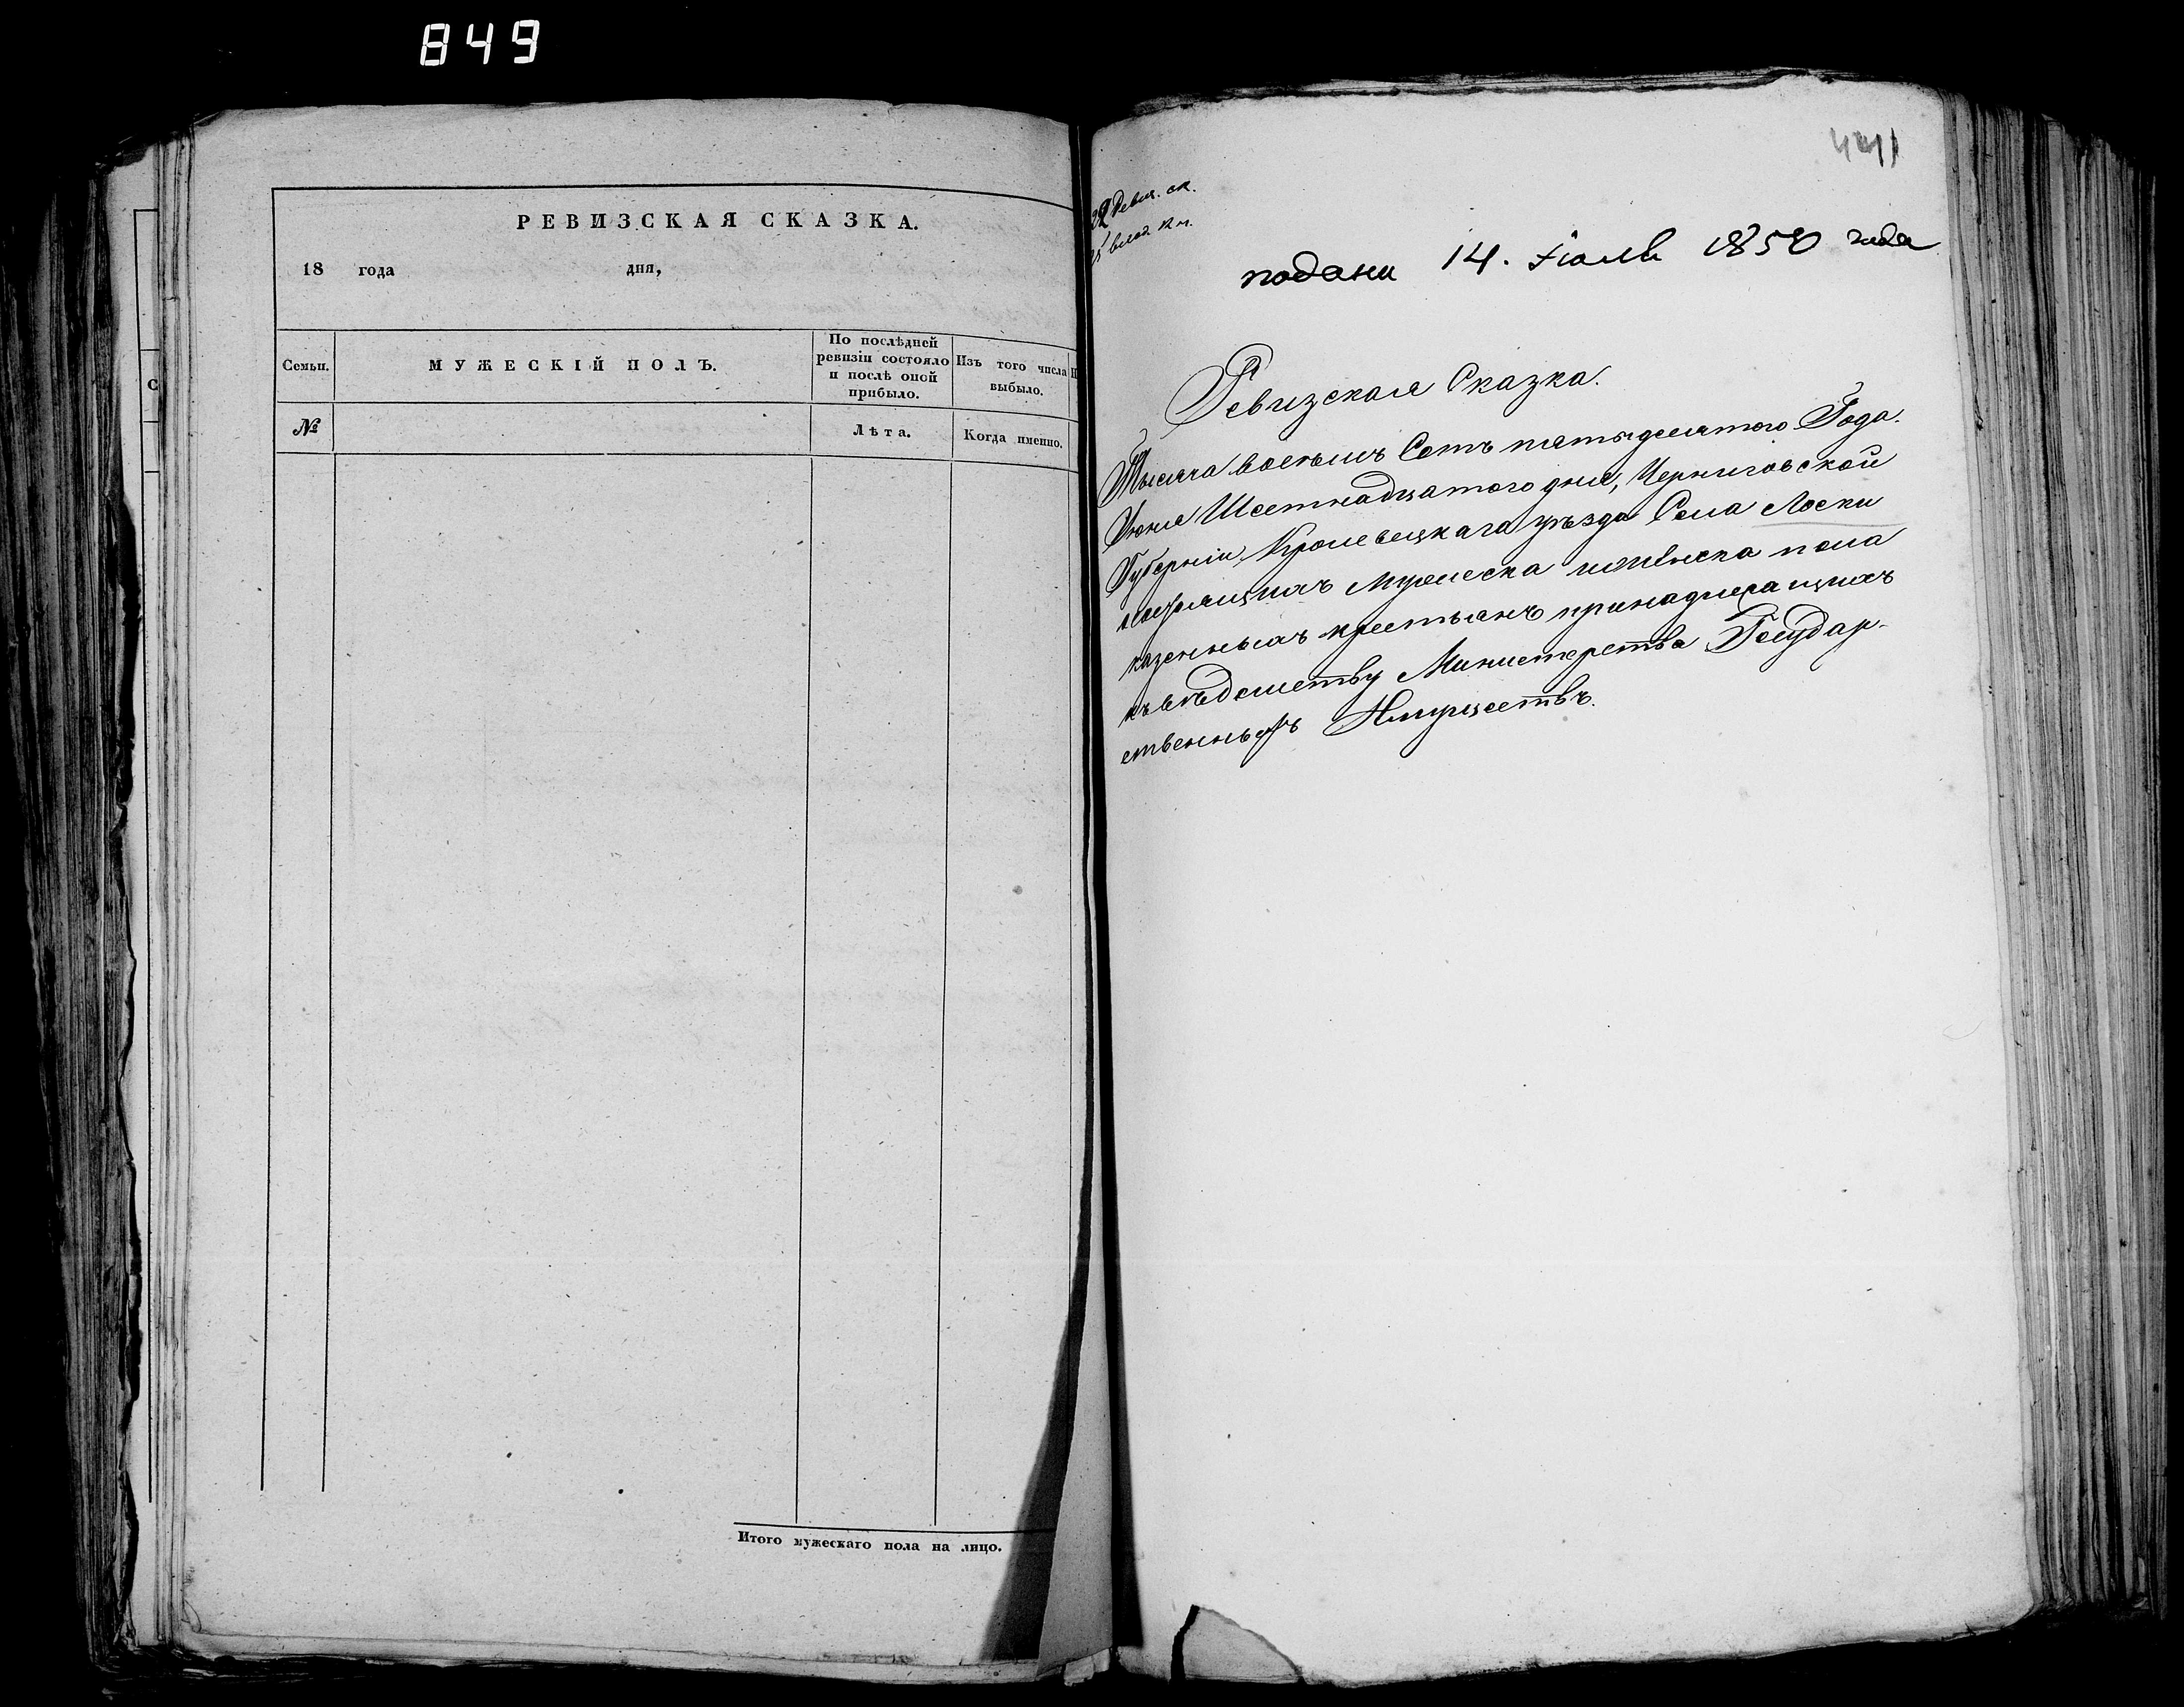 849
РЕВИЗСКАЯ СКАЗКА.
18 года дня,
Семьи.
МУЖЕСКІЙ ПОЛЪ.
По послѣдней ревизіи состояло и послѣ оной прибыло.
Изъ того числа выбыло.
№
Лѣта.
Когда именно.
Итого мужескаго пола на лицо.
441
ревиз. ск.
подана 14. Іюля 1850 года
Ревизская Сказка.
Тысяча восемъ Сотъ пятьдесятого Года.
Июня Шестнадцатого дня, Черниговской
Губерніи, Кролевецкага уѣзда Села Лоски
мужеска иженска пола
казенныхъ крестьянъ принадлежащихъ
къ вѣдомству Министерства Государ-
ственныхъ Имуществъ.